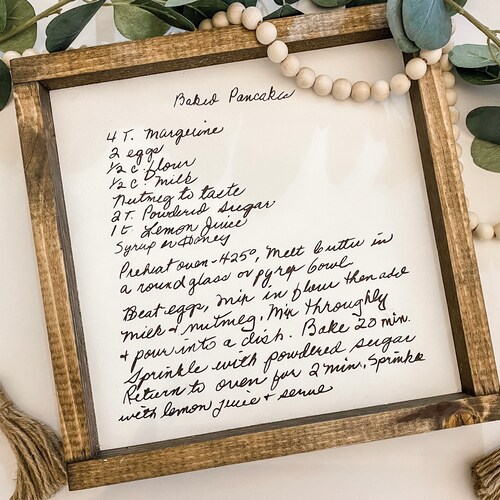 Baked Pancakes
4 T. Margerine
2 eggs
1/2 c. flour
1/2 c. Milk
Nutmeg to taste
2 T. Powdered Sugar
1 t. Lemon Juice
Syrup or Honey
Preheat oven - 425°, Melt butter in
a round glass or pyrex bowl
Beat eggs, mix in flour then add
milk + nutmeg, Mix throughly
+ pour into a dish. Bake 20 min.
Sprinkle with powdered sugar
Return to oven for 2 min., Sprinkle
with lemon juice + serve